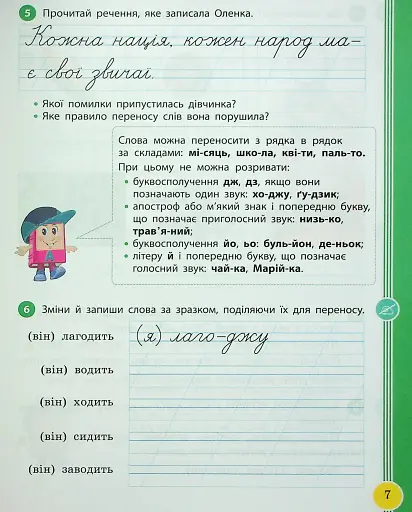 5 Прочитай речення, яке записала Оленка.
Кожна нація, кожен народ ма-
є свої звичаї.
• Якої помилки припустилась дівчинка?
• Яке правило переносу слів вона порушила?
Слова можна переносити з рядка в рядок
за складами: мі-сяць, шко-ла, кві-ти, паль-то.
При цьому не можна розривати:
• буквосполучення дж, дз, якщо вони
позначають один звук: хо-джу, ґу-дзик;
• апостроф або м'який знак і попередню букву,
що позначає приголосний звук: низь-ко,
трав'я-ний;
• буквосполучення йо, ьо: буль-йон, де-ньок;
• літеру й і попередню букву, що позначає
голосний звук: чай-ка, Марій-ка.
6 Зміни й запиши слова за зразком, поділяючи їх для переносу.
(він) лагодить (я) лаго-джу
(він) водить
(він) ходить
(він) сидить
(він) заводить
7